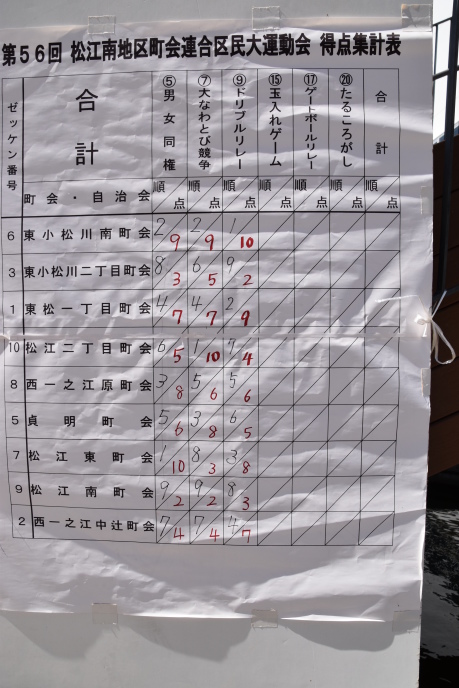 第56回 松江南地区町会連合区民大運動会 得点集計表
ゼッケン番号 合計 ⑤男女同権 ⑦大なわとび競争 ⑨ドリブルリレー ⑮玉入れゲーム ⑰ゲートボールリレー ⑳たるころがし 合計
町会・自治会 順点 順点 順点 順点 順点 順点 順点
6 東小松川南町会 2 9 2 9 1 10
3 東小松川二丁目町会 8 3 6 5 9 2
1 東松一丁目町会 4 7 4 7 2 9
10 松江二丁目町会 6 5 1 10 7 4
8 西一之江原町会 3 8 5 6 5 6
5 貞明町会 5 6 3 8 6 5
7 松江東町会 1 10 8 3 3 8
9 松江南町会 9 2 9 2 8 3
2 西一之江中辻町会 7 4 7 4 4 7